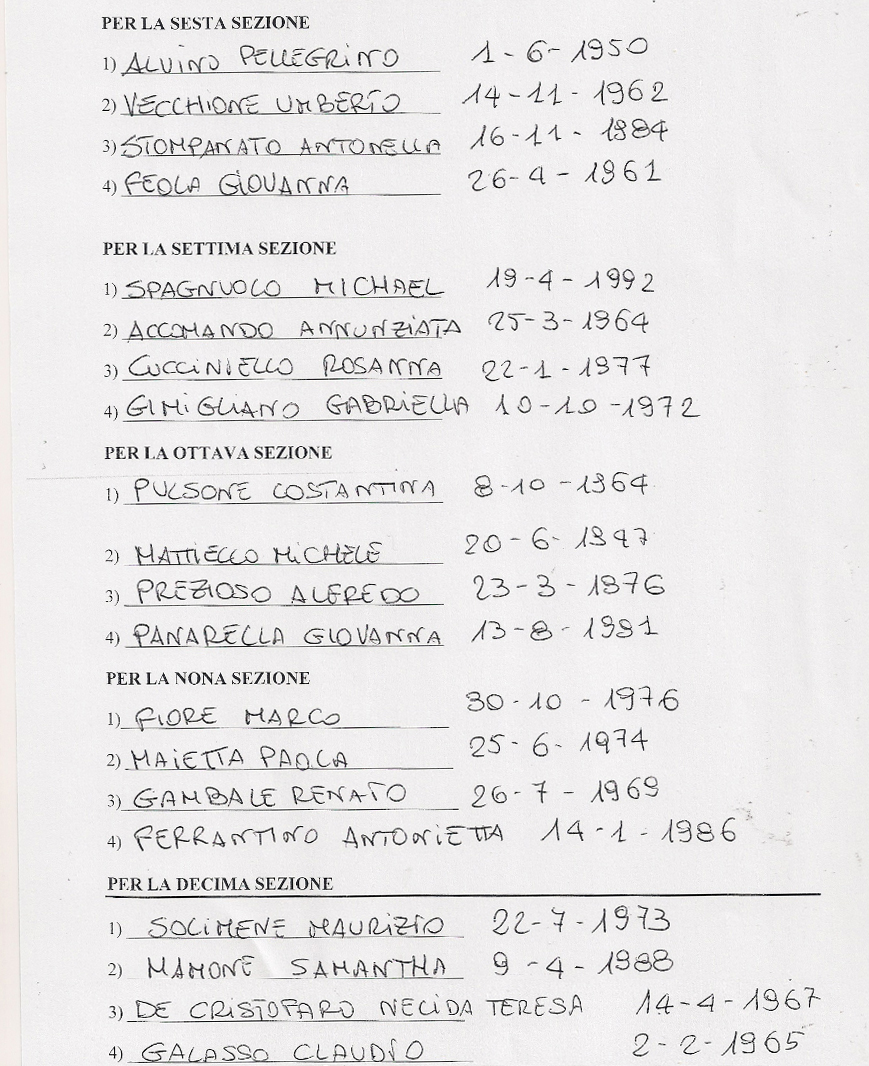 PER LA SESTA SEZIONE
1) ALVINO PELLEGRINO 1-6-1950
2) VECCHIONE UMBERTO 14-11-1962
3) STOMPANATO ANTONELLA 16-11-1984
4) FEOLA GIOVANNA 26-4-1961
PER LA SETTIMA SEZIONE
1) SPAGNUOLO MICHAEL 19-4-1992
2) ACCOMANDO ANNUNZIATA 25-3-1964
3) CUCCINIELLO ROSANNA 22-1-1977
4) GIMIGLIANO GABRIELLA 10-10-1972
PER LA OTTAVA SEZIONE
1) PULSONE COSTANTINA 8-10-1964
2) MATTIELLO MICHELE 20-6-1947
3) PREZIOSO ALFREDO 23-3-1976
4) PANARELLA GIOVANNA 13-8-1991
PER LA NONA SEZIONE
1) FIORE MARCO 30-10-1976
2) MAIETTA PAOLA 25-6-1974
3) GAMBALE RENATO 26-7-1969
4) FERRANTINO ANTONIETTA 14-1-1986
PER LA DECIMA SEZIONE
1) SOLIMENE MAURIZIO 22-7-1973
2) MAMONE SAMANTHA 9-4-1988
3) DE CRISTOFARO NELIDA TERESA 14-4-1967
4) GALASSO CLAUDIO 2-2-1965